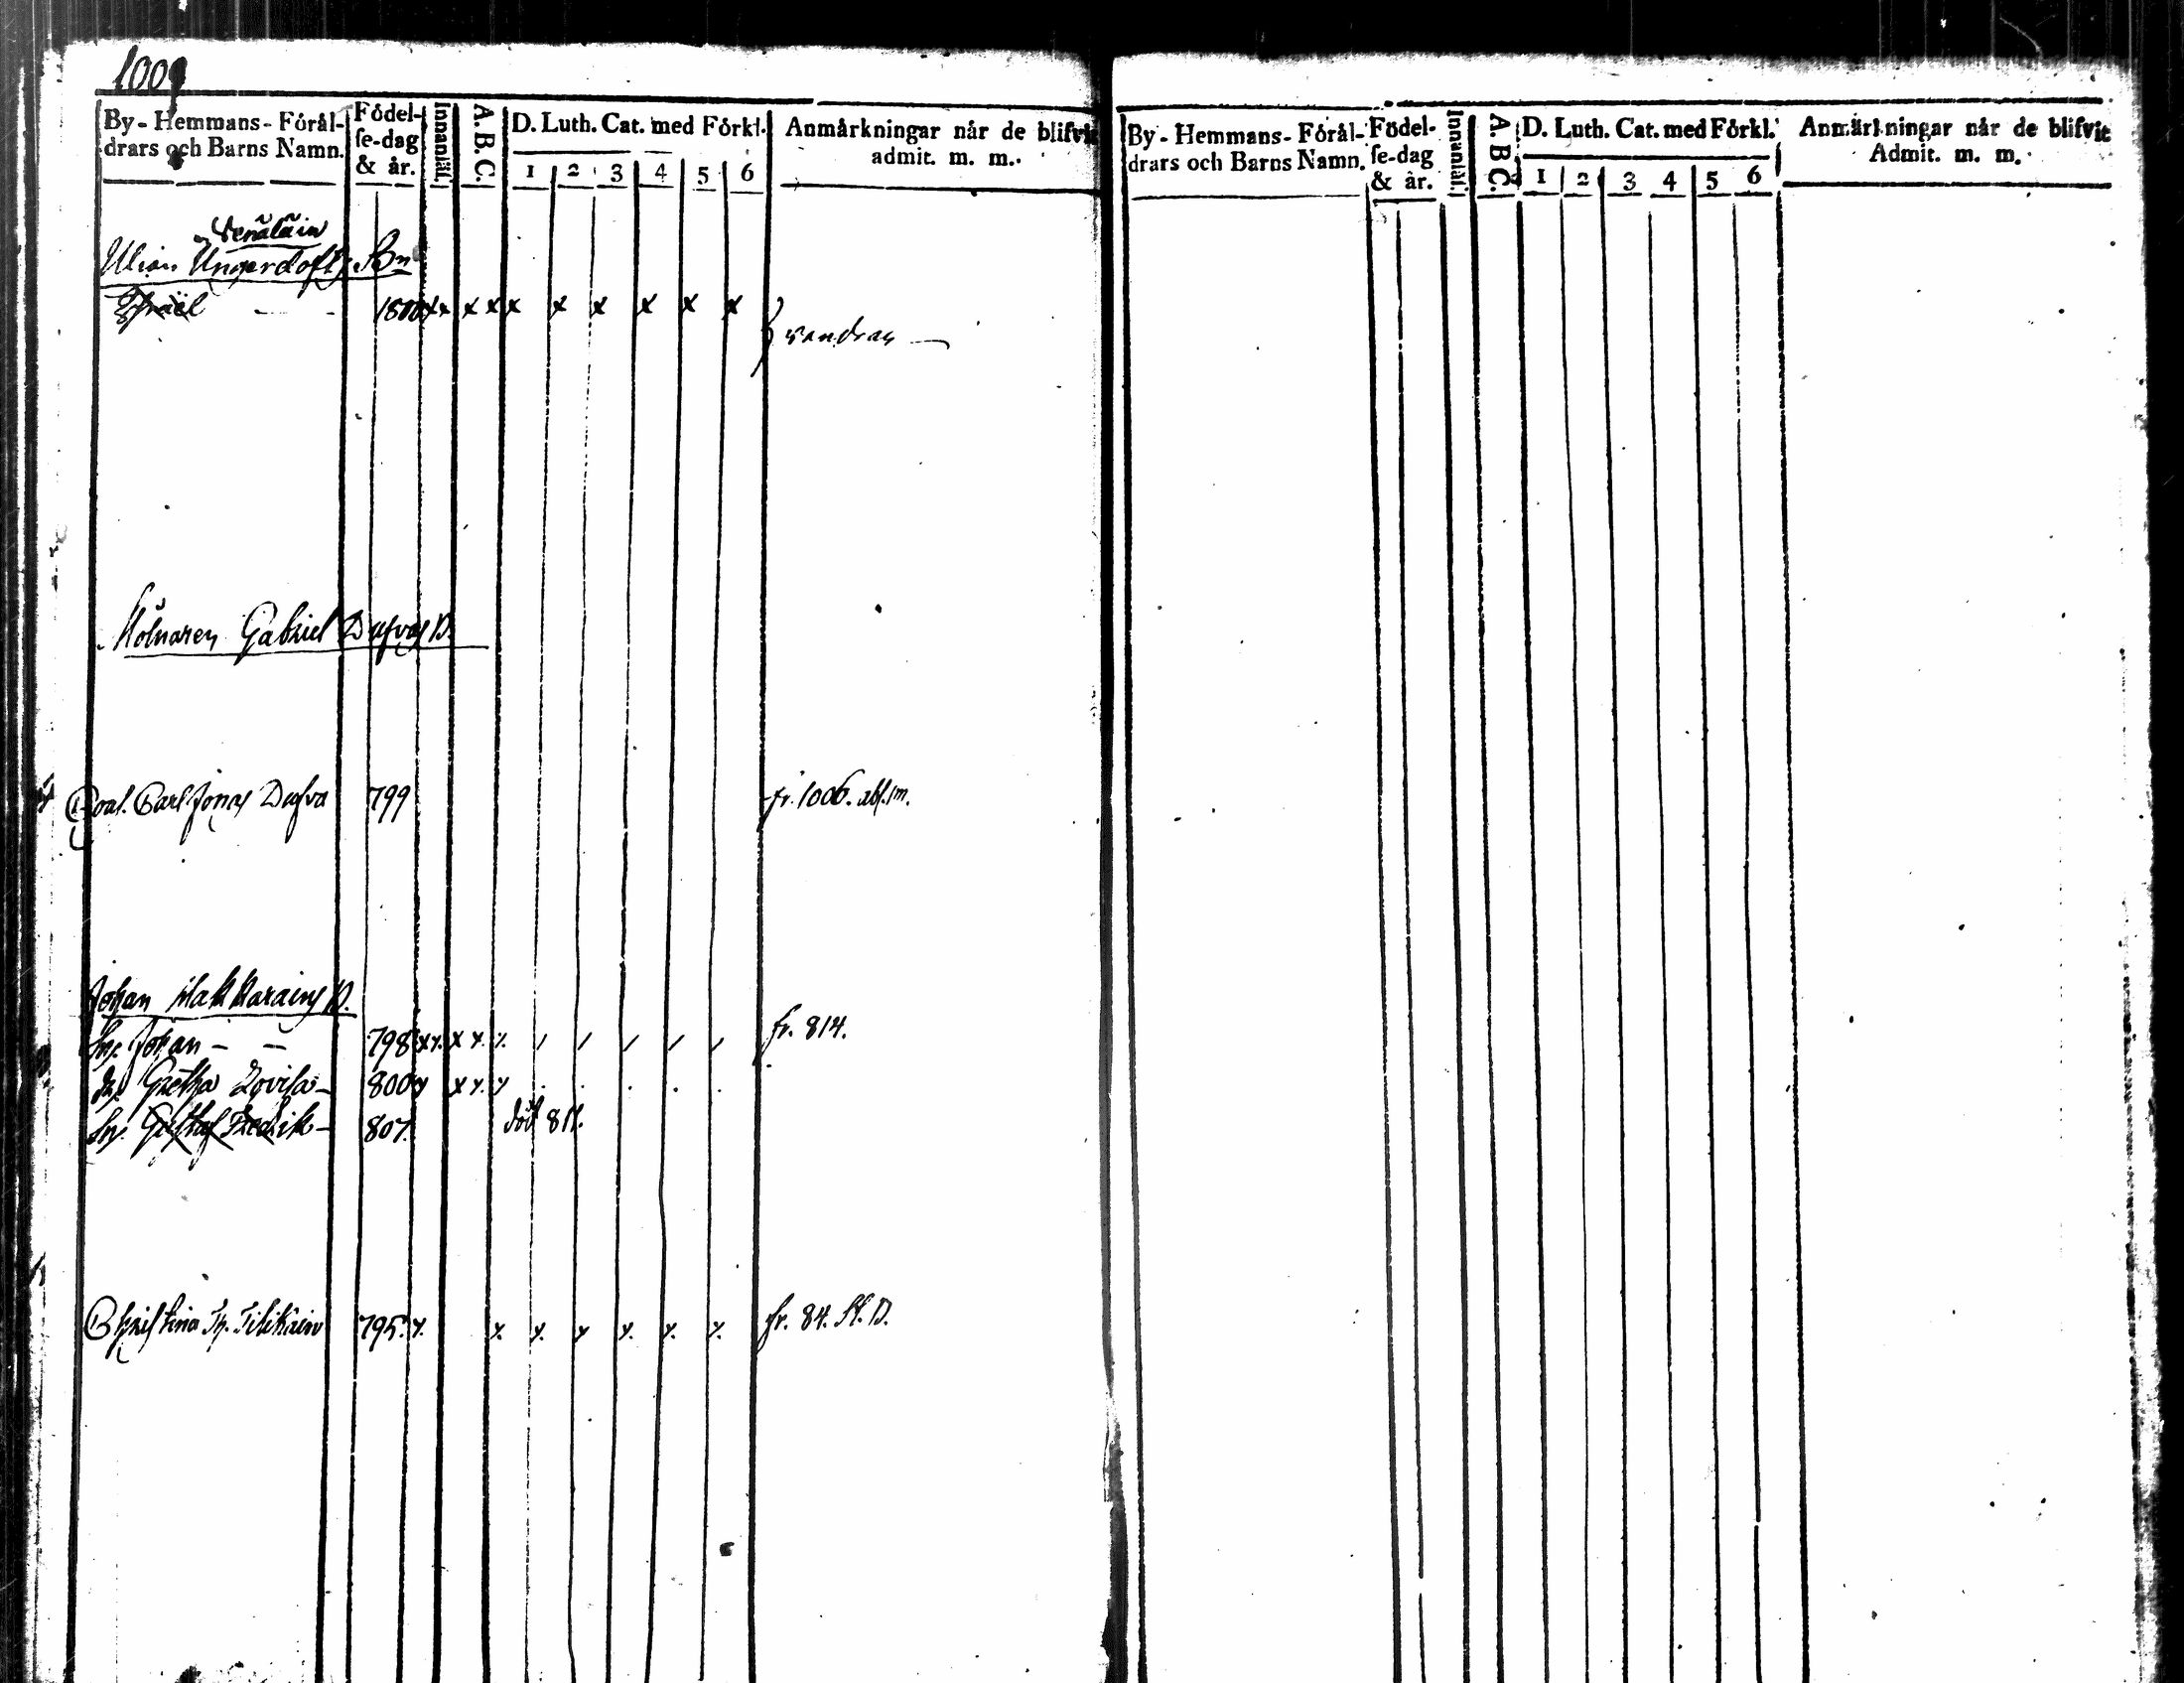 1009
By - Hemmans - Förål-
drars och Barns Namn.
Födel-
se-dag
& år.
Innanläs.
A. B. C.
D. Luth. Cat. med Förkl.
1 2 3 4 5 6
Anmärkningar når de blifvit
admit. m. m.
Venäläin
Ungerdofts Bn
Israël - - 1800 x x x x x x x x x x
vandrar
Mölnaren Gabriel Dufvas B.
Carl Jonas Dufva 799 fr. 1006.
Johan Makkarains B.
Sn. Johan - - 798 x x. x x. x. / / / / / fr. 814.
dr. Gretha Lovisa - 800 x x x. x . . . . .
Sn. Gustaf Fredrik - 807. död 811.
Christina Tilikain 795. x. x. x. x x. x. x. fr. 84. St. B.
By - Hemmans - Förål-
drars och Barns Namn.
Födel-
se-dag
& år.
Innanläs.
A. B. C.
D. Luth. Cat. med Förkl.
1 2 3 4 5 6
Anmärkningar når de blifvit
Admit. m. m.